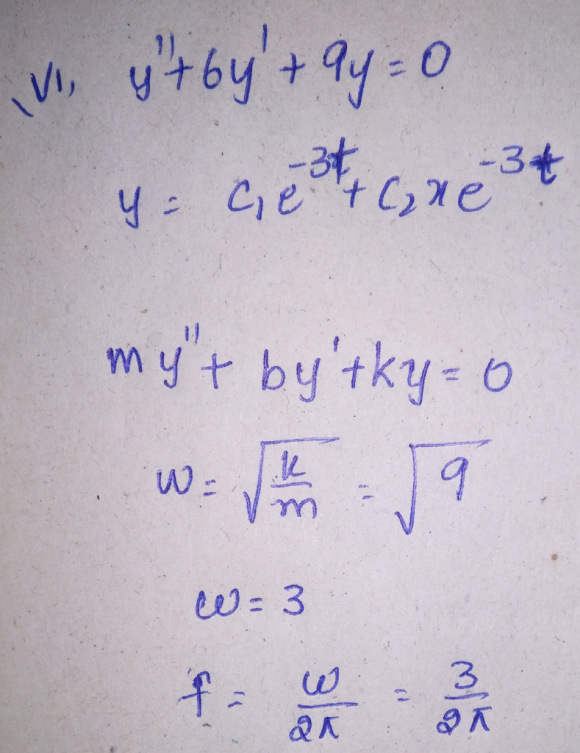 VI, y'' + 6y' + 9y = 0
y = C₁e^{-3t} + C₂xe^{-3t}
my'' + by' + ky = 0
w = √(k/m) = √9
ω = 3
f = ω/2π = 3/2π